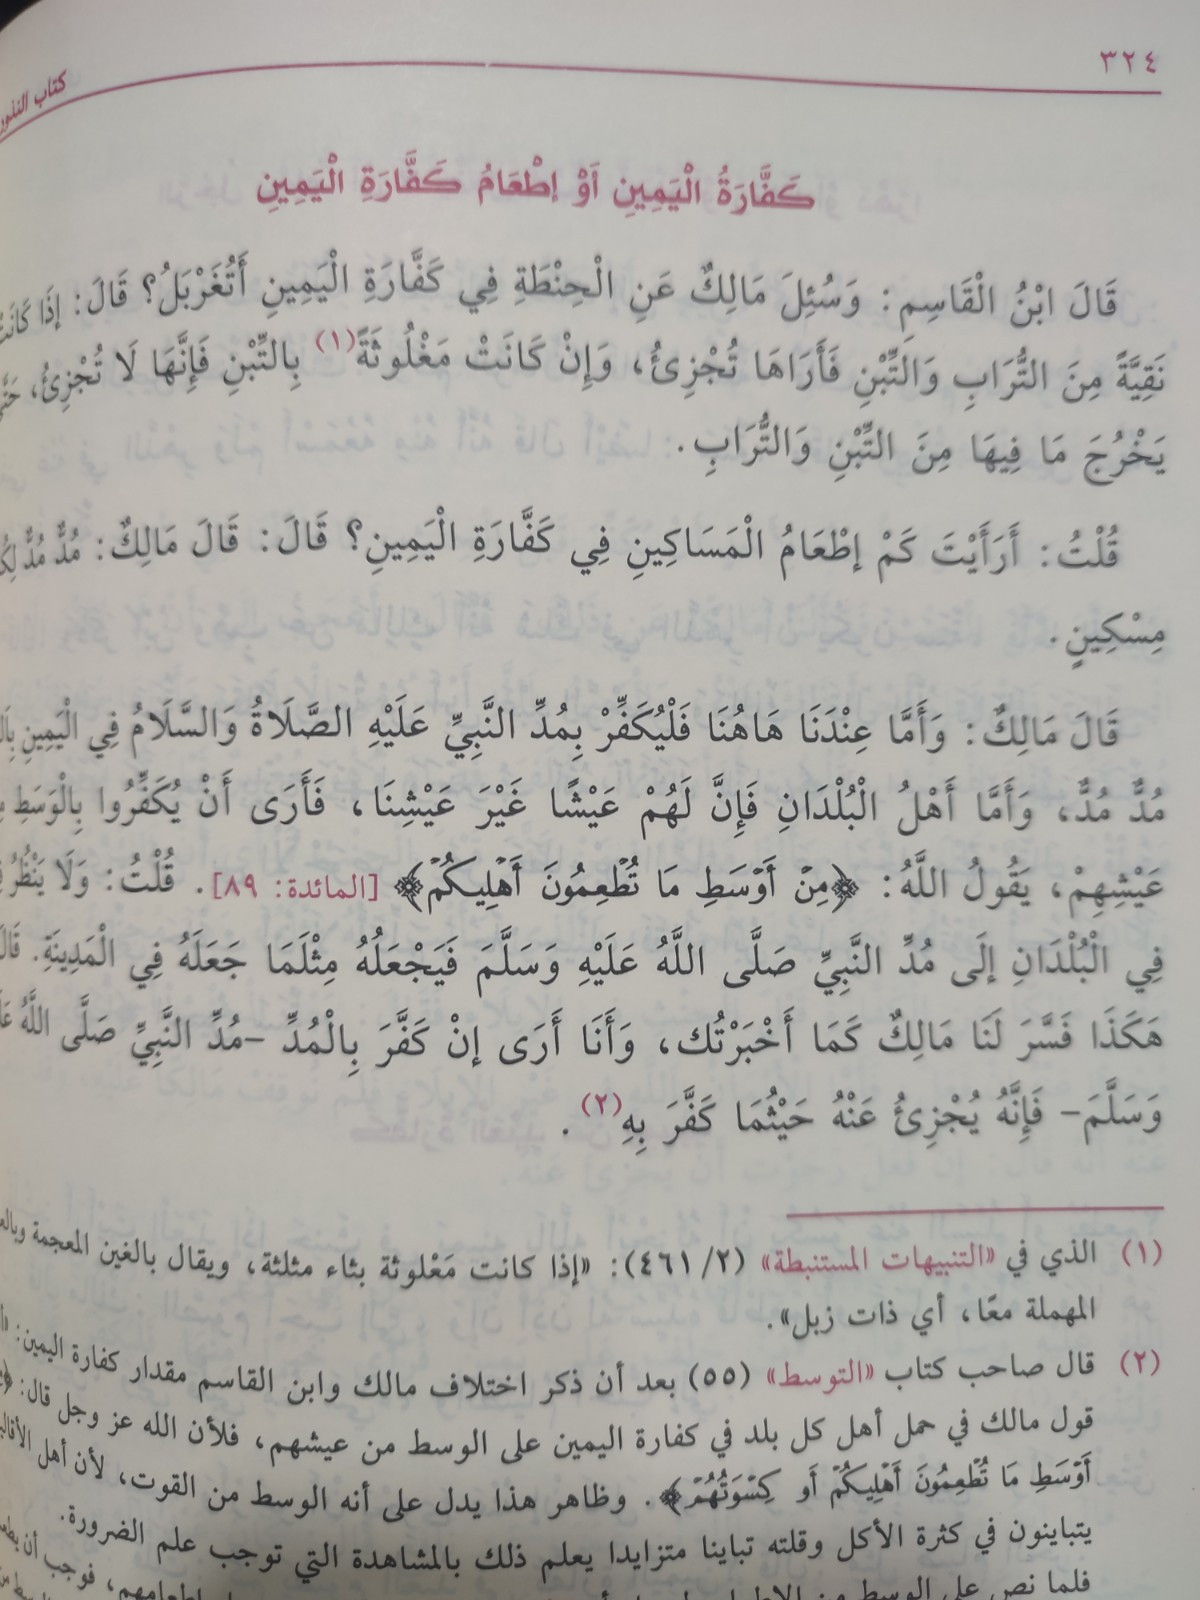 ٣٢٤
كتاب النذور
كَفَّارَةُ الْيَمِينِ أَوْ إطْعَامُ كَفَّارَةِ الْيَمِينِ
قَالَ ابْنُ الْقَاسِمِ: وَسُئِلَ مَالِكٌ عَنِ الْحِنْطَةِ فِي كَفَّارَةِ الْيَمِينِ أَتُغَرْبَلُ؟ قَالَ: إذَا كَانَتْ
نَقِيَّةً مِنَ التُّرَابِ وَالتِّبْنِ فَأَرَاهَا تُجْزِئُ، وَإِنْ كَانَتْ مَغْلُوثَةً(١) بِالتِّبْنِ فَإِنَّهَا لَا تُجْزِئُ، حَتَّى
يَخْرُجَ مَا فِيهَا مِنَ التِّبْنِ وَالتُّرَابِ.
قُلْتُ: أَرَأَيْتَ كَمْ إطْعَامُ الْمَسَاكِينِ فِي كَفَّارَةِ الْيَمِينِ؟ قَالَ: قَالَ مَالِكٌ: مُدٌّ مُدٌّ
مِسْكِينٍ.
قَالَ مَالِكٌ: وَأَمَّا عِنْدَنَا هَاهُنَا فَلْيُكَفِّرْ بِمُدِّ النَّبِيِّ عَلَيْهِ الصَّلَاةُ وَالسَّلَامُ فِي الْيَمِينِ
مُدٌّ مُدٌّ، وَأَمَّا أَهْلُ الْبُلْدَانِ فَإِنَّ لَهُمْ عَيْشًا غَيْرَ عَيْشِنَا، فَأَرَى أَنْ يُكَفِّرُوا بِالْوَسَطِ
عَيْشِهِمْ، يَقُولُ اللَّهُ: ﴿مِنْ أَوْسَطِ مَا تُطْعِمُونَ أَهْلِيكُمْ﴾ [المائدة: ٨٩]. قُلْتُ: وَلَا يَنْظُرُ
فِي الْبُلْدَانِ إلَى مُدِّ النَّبِيِّ صَلَّى اللَّهُ عَلَيْهِ وَسَلَّمَ فَيَجْعَلُهُ مِثْلَمَا جَعَلَهُ فِي الْمَدِينَةِ. قَالَ
هَكَذَا فَسَّرَ لَنَا مَالِكٌ كَمَا أَخْبَرْتُك، وَأَنَا أَرَى إنْ كَفَّرَ بِالْمُدِّ –مُدِّ النَّبِيِّ صَلَّى اللَّهُ
وَسَلَّمَ– فَإِنَّهُ يُجْزِئُ عَنْهُ حَيْثُمَا كَفَّرَ بِهِ(٢).
(١) الذي في «التنبيهات المستنبطة» (٤٦١/٢): «إذا كانت مَغْلوثة بثاء مثلثة، ويقال بالغين المعجمة
المهملة معًا، أي ذات زبل».
(٢) قال صاحب كتاب «التوسط» (٥٥) بعد أن ذكر اختلاف مالك وابن القاسم مقدار كفارة اليمين:
قول مالك في حمل أهل كل بلد في كفارة اليمين على الوسط من عيشهم، فلأن الله عز وجل قال:
أَوْسَطِ مَا تُطْعِمُونَ أَهْلِيكُمْ أَوْ كِسْوَتُهُمْ﴾. وظاهر هذا يدل على أنه الوسط من القوت، لأن أهل
يتباينون في كثرة الأكل وقلته تباينا متزايدا يعلم ذلك بالمشاهدة التي توجب علم الضرورة.
فلما نص على الوسط من إطعامهم، فوجب أن